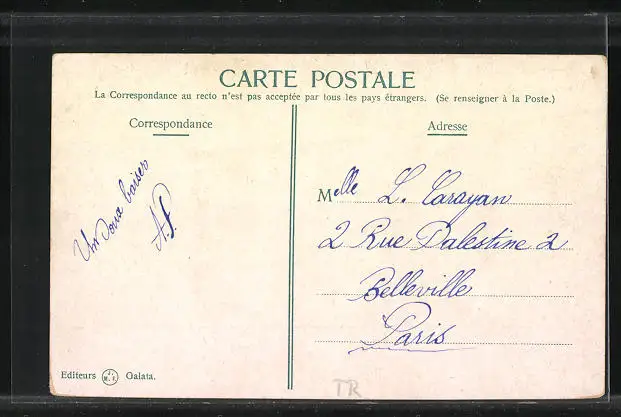 CARTE POSTALE
La Correspondance au recto n'est pas acceptée par tous les pays étrangers. (Se renseigner à la Poste.)
Correspondance
Un doux baiser
A.S.
Adresse
Melle L. Carayan
2 Rue Palestine 2
Belleville
Paris
Editeurs J. M. F. Galata.
TR